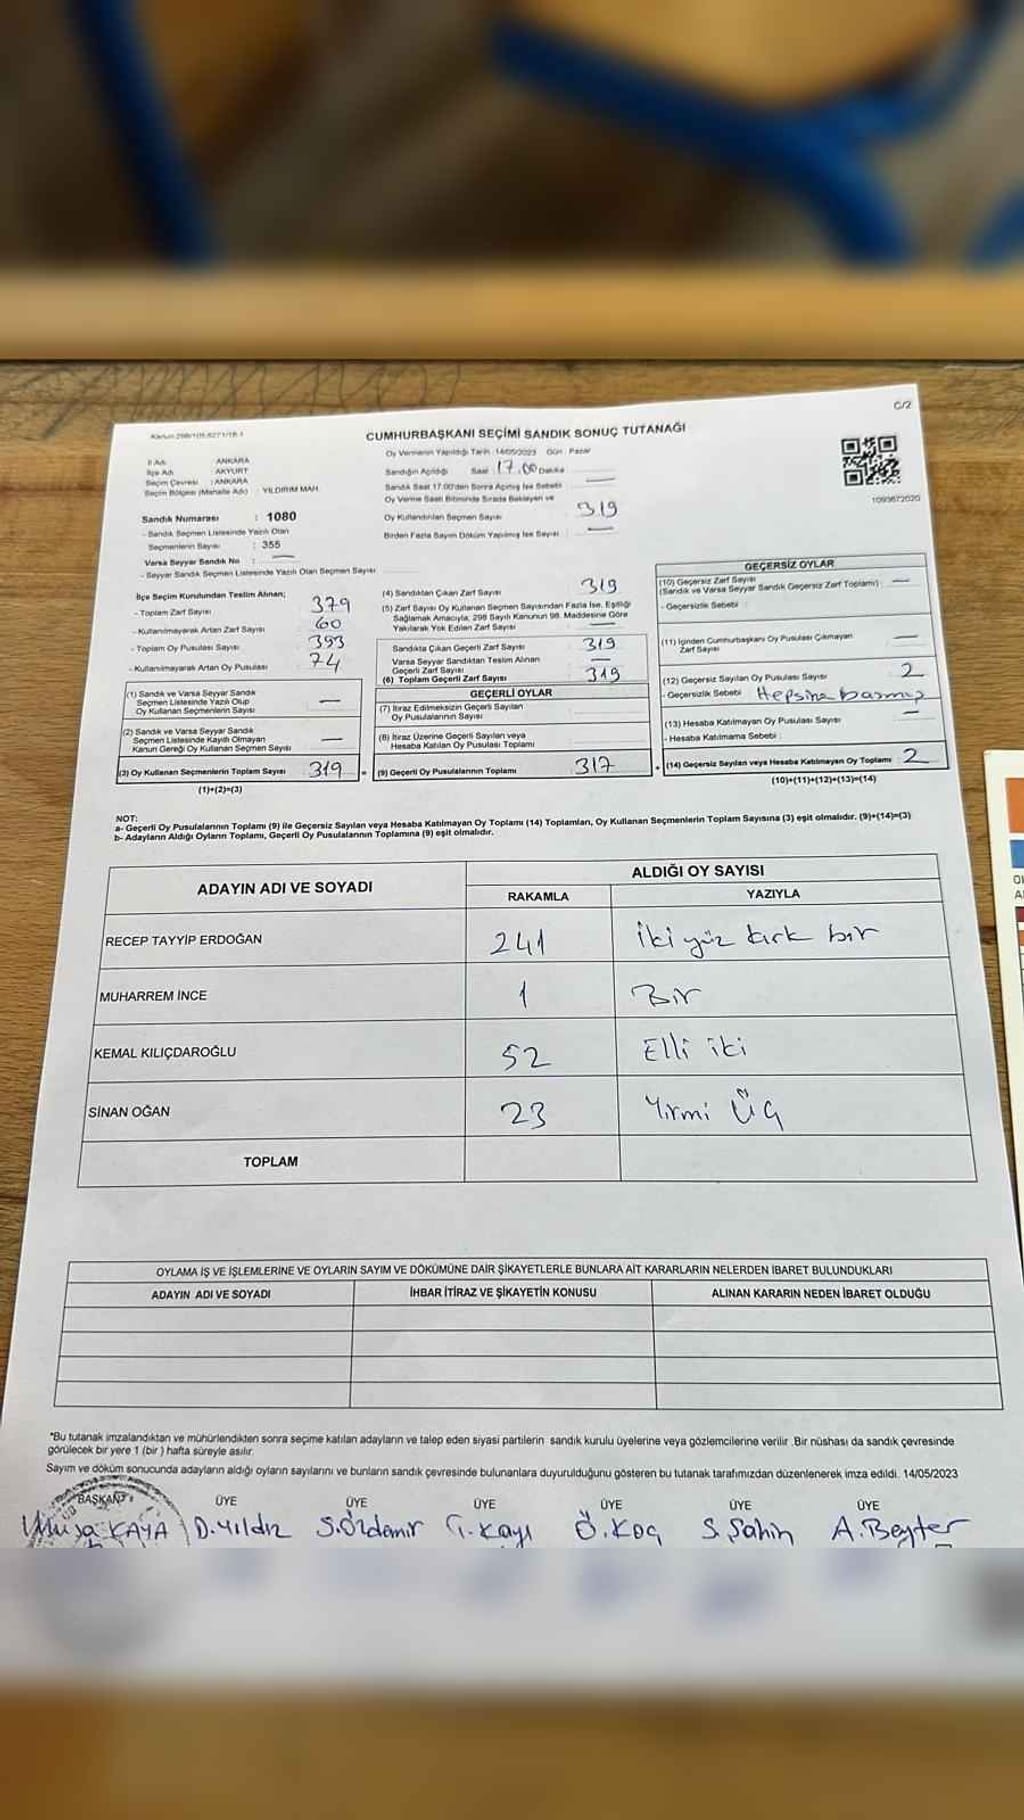 C/2
CUMHURBAŞKANI SEÇİMİ SANDIK SONUÇ TUTANAĞI
İl Adı : ANKARA
İlçe Adı : AKYURT
Seçim Çevresi : ANKARA
Seçim Bölgesi (Mahalle Adı) : YILDIRIM MAH.
Sandık Numarası : 1080
- Sandık Seçmen Listesinde Yazılı Olan
Seçmenlerin Sayısı : 355
Varsa Seyyar Sandık No : —
- Seyyar Sandık Seçmen Listesinde Yazılı Olan Seçmen Sayısı
Oy Vermenin Yapıldığı Tarih :14/05/2023 Gün : Pazar
Sandığın Açıldığı Saat 17.00 Dakika
Sandık Saat 17.00'den Sonra Açılmış İse Sebebi —
Oy Verme Saati Bitiminde Sırada Bekleyen ve
Oy Kullandırılan Seçmen Sayısı 319
Birden Fazla Sayım Döküm Yapılmış İse Sayısı : —
1093672020
İlçe Seçim Kurulundan Teslim Alınan;
- Toplam Zarf Sayısı 379
- Kullanılmayarak Artan Zarf Sayısı 60
- Toplam Oy Pusulası Sayısı 393
- Kullanılmayarak Artan Oy Pusulası 74
(1) Sandık ve Varsa Seyyar Sandık
Seçmen Listesinde Yazılı Olup
Oy Kullanan Seçmenlerin Sayısı —
(2) Sandık ve Varsa Seyyar Sandık
Seçmen Listesinde Kayıtlı Olmayan
Kanun Gereği Oy Kullanan Seçmen Sayısı —
(3) Oy Kullanan Seçmenlerin Toplam Sayısı 319
(1)+(2)=(3)
(4) Sandıktan Çıkan Zarf Sayısı 319
(5) Zarf Sayısı Oy Kullanan Seçmen Sayısından Fazla İse, Eşitliği
Sağlamak Amacıyla, 298 Sayılı Kanunun 98. Maddesine Göre
Yakılarak Yok Edilen Zarf Sayısı —
Sandıkta Çıkan Geçerli Zarf Sayısı 319
Varsa Seyyar Sandıktan Teslim Alınan
Geçerli Zarf Sayısı —
(6) Toplam Geçerli Zarf Sayısı 319
GEÇERLİ OYLAR
(7) İtiraz Edilmeksizin Geçerli Sayılan
Oy Pusulalarının Sayısı
(8) İtiraz Üzerine Geçerli Sayılan veya
Hesaba Katılan Oy Pusulası Toplamı
= (9) Geçerli Oy Pusulalarının Toplamı 317
GEÇERSİZ OYLAR
(10) Geçersiz Zarf Sayısı
(Sandık ve Varsa Seyyar Sandık Geçersiz Zarf Toplamı) : —
- Geçersizlik Sebebi :
(11) İçinden Cumhurbaşkanı Oy Pusulası Çıkmayan
Zarf Sayısı —
(12) Geçersiz Sayılan Oy Pusulası Sayısı 2
- Geçersizlik Sebebi Hepsine basmış
(13) Hesaba Katılmayan Oy Pusulası Sayısı —
- Hesaba Katılmama Sebebi :
+ (14) Geçersiz Sayılan veya Hesaba Katılmayan Oy Toplamı 2
(10)+(11)+(12)+(13)=(14)
NOT:
a- Geçerli Oy Pusulalarının Toplamı (9) ile Geçersiz Sayılan veya Hesaba Katılmayan Oy Toplamı (14) Toplamları, Oy Kullanan Seçmenlerin Toplam Sayısına (3) eşit olmalıdır. (9)+(14)=(3)
b- Adayların Aldığı Oyların Toplamı, Geçerli Oy Pusulalarının Toplamına (9) eşit olmalıdır.
ADAYIN ADI VE SOYADI
ALDIĞI OY SAYISI
RAKAMLA YAZIYLA
RECEP TAYYİP ERDOĞAN 241 İki yüz kırk bir
MUHARREM İNCE 1 Bir
KEMAL KILIÇDAROĞLU 52 Elli iki
SİNAN OĞAN 23 Yirmi Üç
TOPLAM
OYLAMA İŞ VE İŞLEMLERİNE VE OYLARIN SAYIM VE DÖKÜMÜNE DAİR ŞİKAYETLERLE BUNLARA AİT KARARLARIN NELERDEN İBARET BULUNDUKLARI
ADAYIN ADI VE SOYADI İHBAR İTİRAZ VE ŞİKAYETİN KONUSU ALINAN KARARIN NEDEN İBARET OLDUĞU
"Bu tutanak imzalandıktan ve mühürlendikten sonra seçime katılan adayların ve talep eden siyasi partilerin sandık kurulu üyelerine veya gözlemcilerine verilir .Bir nüshası da sandık çevresinde
görülecek bir yere 1 (bir ) hafta süreyle asılır.
Sayım ve döküm sonucunda adayların aldığı oyların sayılarını ve bunların sandık çevresinde bulunanlara duyurulduğunu gösteren bu tutanak tarafımızdan düzenlenerek imza edildi. 14/05/2023
BAŞKAN ÜYE ÜYE ÜYE ÜYE ÜYE ÜYE
Musa KAYA D.Yıldız S.Özdemir T.Kayı Ö.Koç S.Şahin A.Beyter